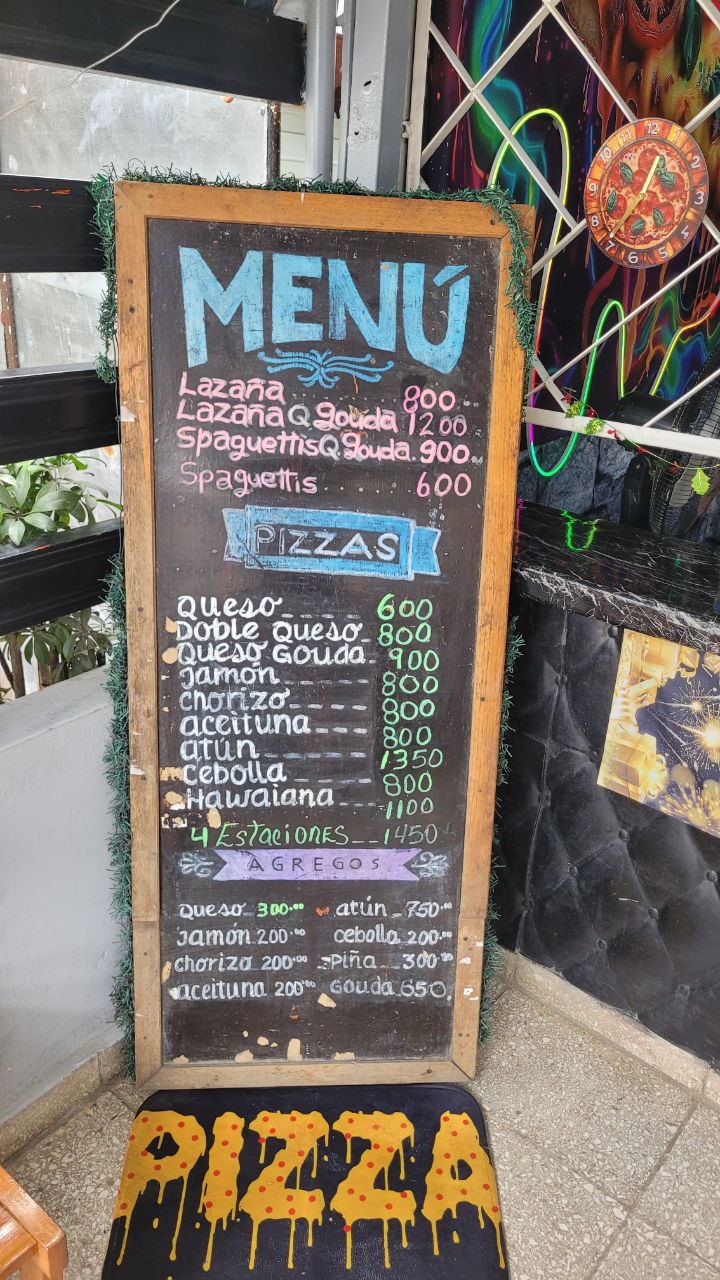 MENÚ
Lazaña 800
Lazaña Q gouda 1200
Spaguettis Q gouda. 900
Spaguettis 600
PIZZAS
Queso 600
Doble Queso 800
Queso Gouda 900
Jamón 800
chorizo 800
aceituna 800
atún 1350
cebolla 800
Hawaiana 1100
4 Estaciones 1450
AGREGOS
Queso 300.00 atún 750.00
Jamón 200.00 cebolla 200.00
chorizo 200.00 Piña 300.00
aceituna 200.00 Gouda 650
PIZZA
12
1
2
3
5
6
7
8
9
10
11